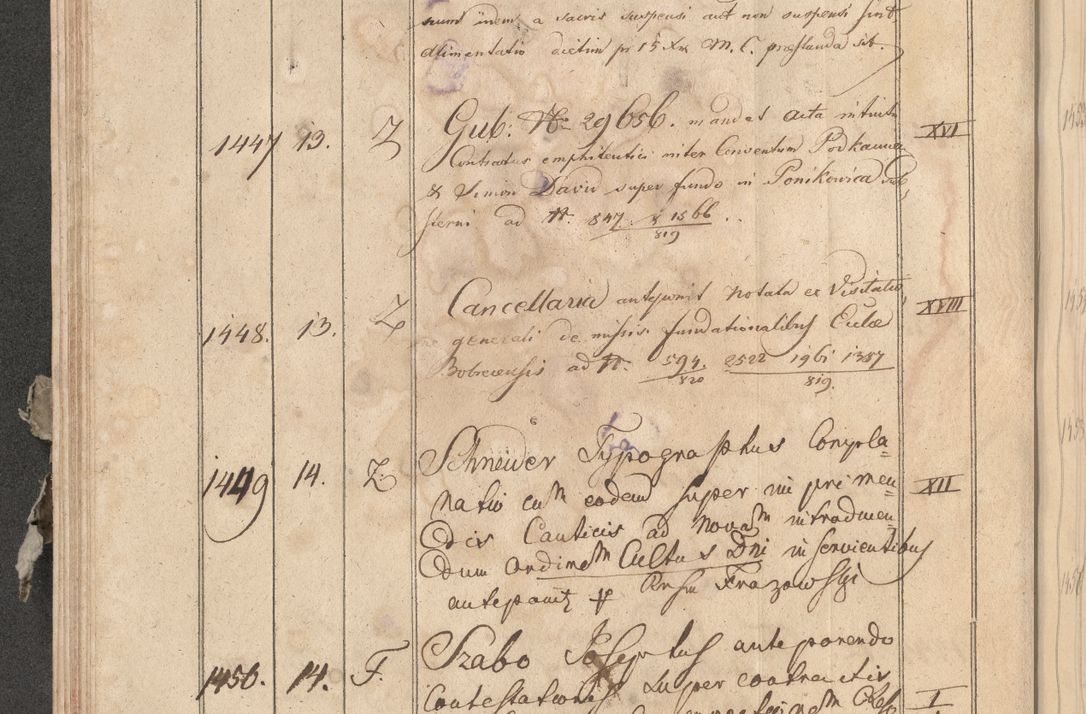 sunt iidem a sacris suspensi aut non suspensi sint
alimentatio dietim pr 15 Xr M. C. præstanda sit.
1447 13. Z Gub: No 29656. mandat acta intuitu XVI
Contractus emphiteutici inter Conventum Podkamien
& Simon David super fundo in Ponikowica
sterni ad N. 847. & 1566 ..
819
1448. 13. Z Cancellaria anteponit notata ex Visitatio XVIII
ne generali de missis fundationalibus Eccłae
Bobrecensis ad N. 594. 2522 1961 1387
820 819.
1449 14. Z Schneider Typographus Compla= XII
natio cum eodem super im primen=
dis Canticis ad Novam introducen
dum ordinem Cultus Dni inservientibus
anteponit Frazowski
1450. 14. F. Szabo Josephus anteponendo
Contestationes super contractis I